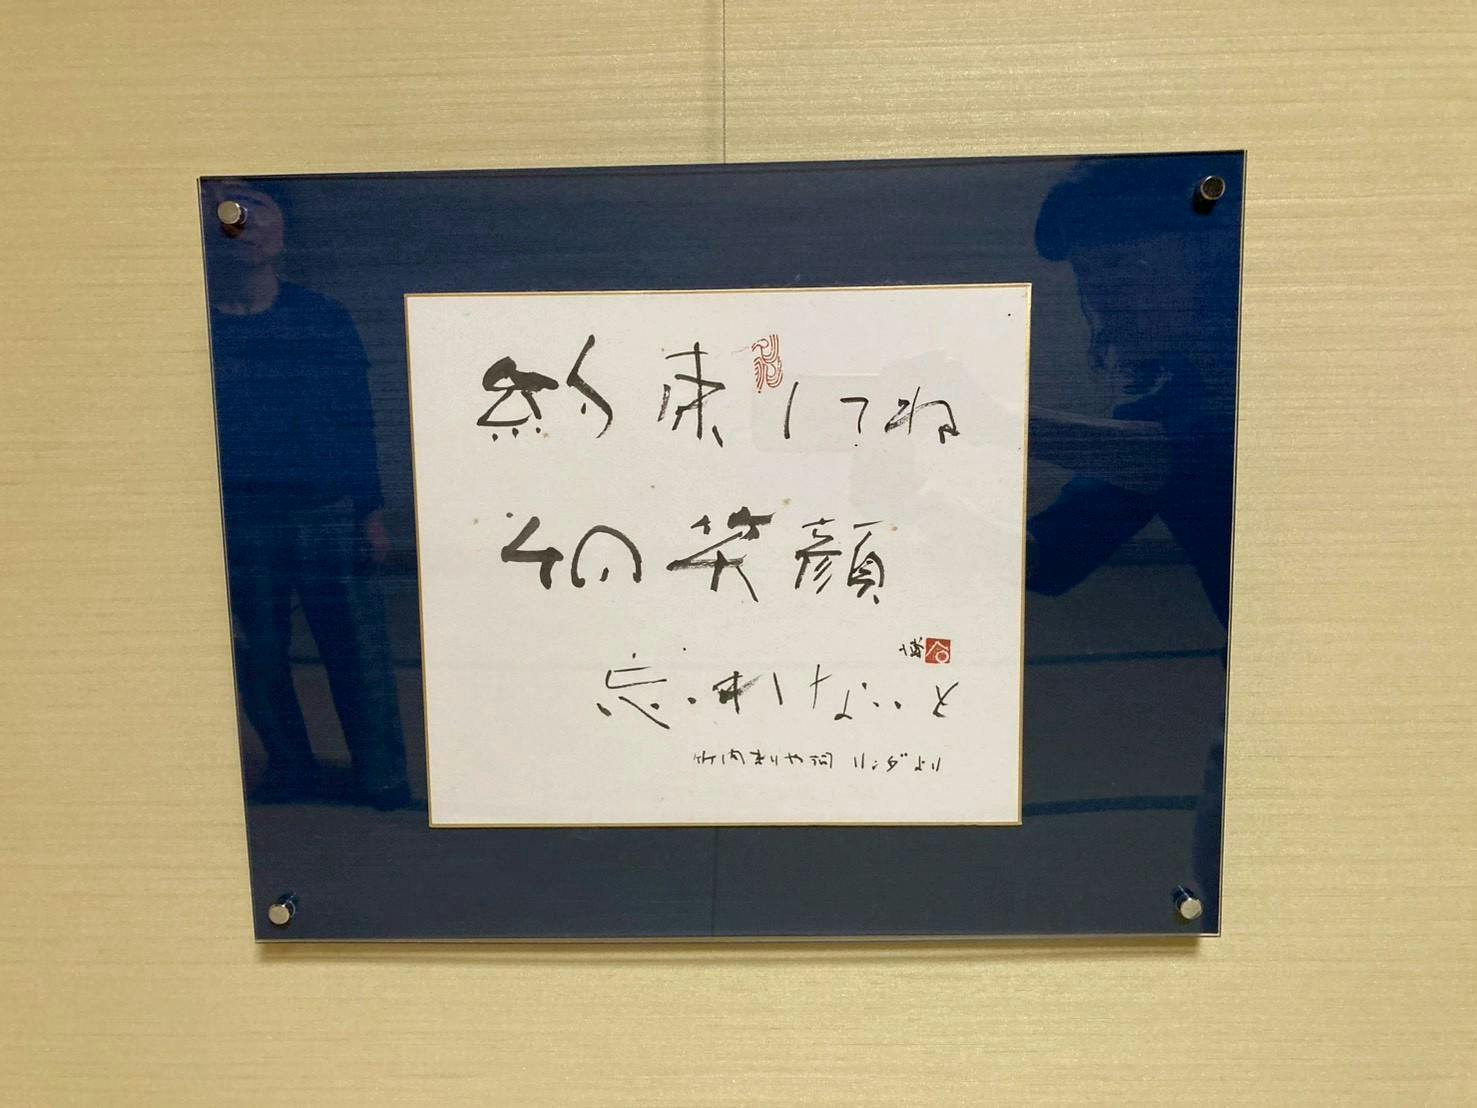 約束してね
その笑顔
博
忘れないと
竹内まりや詞 リンダより